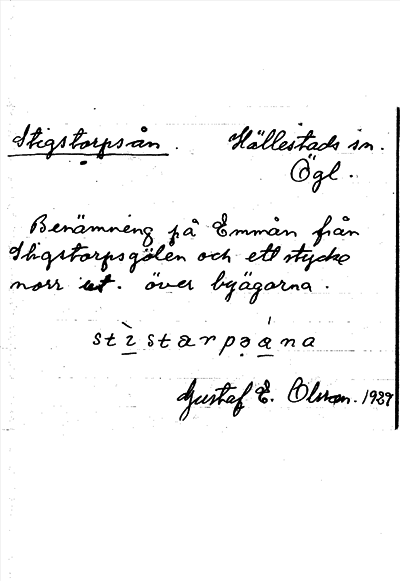 Stigstorpsån. Hällestads sn.
Ögl.
Benämning på Emmån från
Stigstorpsgölen och ett stycke
norr ut. över byägorna.
stìstarpəánа
Gustaf E. Olsson. 1929